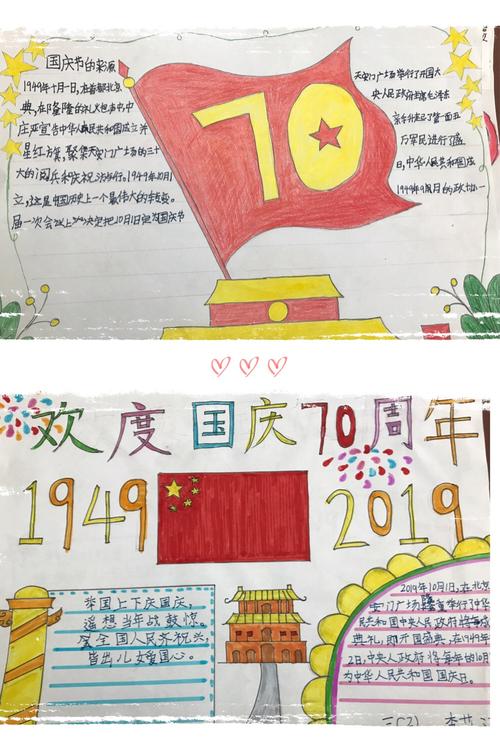 国庆节的来源
1949年十月一日,在首都北京
天安门广场举行了开国大
典,在隆隆的礼炮声中,中
央人民政府主席毛泽东
庄严宣告中华人民共和国成立并
亲手升起了第一面五
星红旗,聚集天安门广场的三十
万军民进行了盛
大的阅兵和庆祝游行。1949年10月1
日,中华人民共和国成
立,这是中国历史上一个最伟大的转变。
1949年9月的政协一
届一次会议上决定把10月1日定为国庆节
70
欢度国庆70周年
1949
2019
举国上下庆国庆,
遥想当年战鼓
全国人民齐祝兴,
皆出儿女爱国心。
2019年10月1日,在北京
安门广场举行了中华
民共和国中央人民政府
典礼,即开国盛典,在1949年
2日,中央人政府将每年的10月
为中华人民共和国国庆日。
三(2)